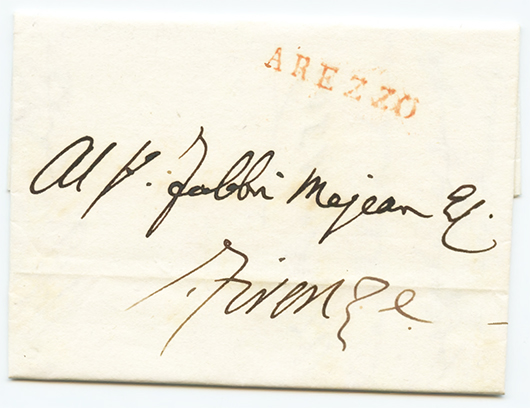 AREZZO
Al S. Fabbri Mejean
Firenze